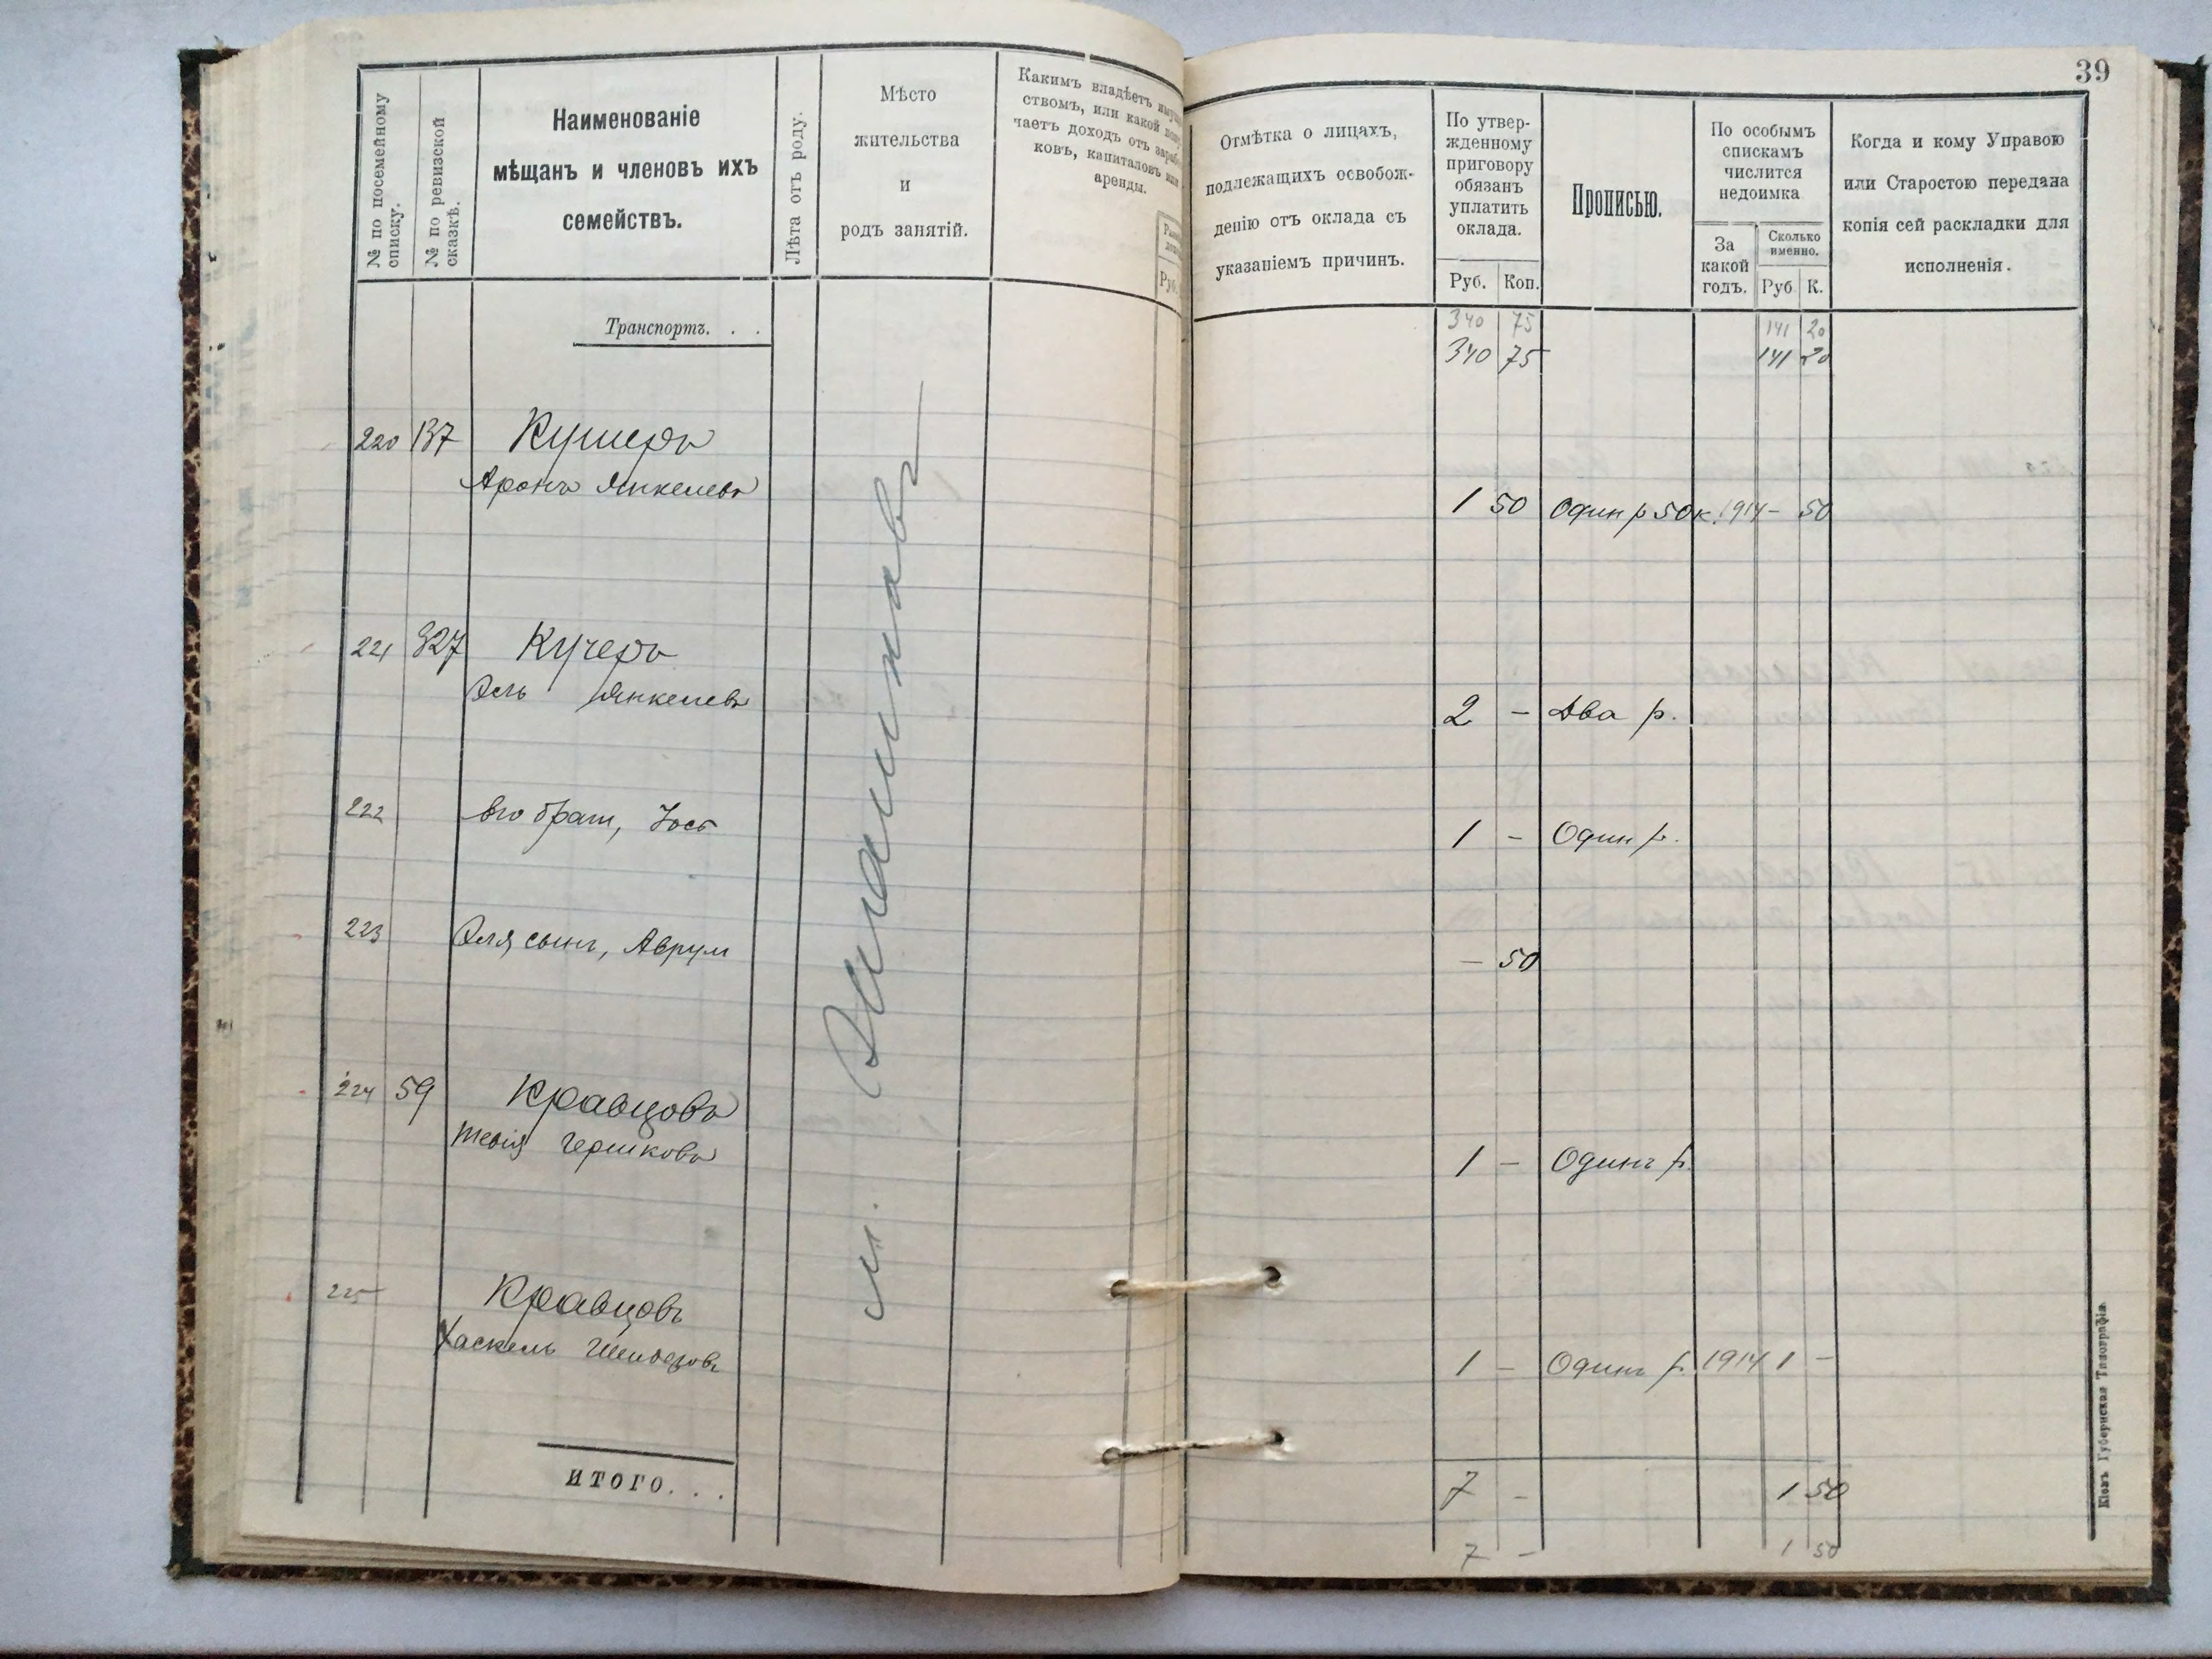 39
№ по посемейному списку.
№ по ревизской сказкѣ.
Наименованіе
мѣщанъ и членовъ ихъ
семействъ.
Лѣта отъ роду.
Мѣсто
жительства
и
родъ занятій.
Какимъ владѣетъ
ствомъ, или какой
чаетъ доходъ отъ
ковъ, капиталовъ или
аренды.
Руб.
Отмѣтка о лицахъ,
подлежащихъ освобож-
денію отъ оклада съ
указаніемъ причинъ.
По утвер-
жденному
приговору
обязанъ
уплатить
оклада.
Руб. Коп.
Прописью.
По особымъ
спискамъ
числится
недоимка
За
какой
годъ.
Сколько
именно.
Руб К.
Когда и кому Управою
или Старостою передана
копія сей раскладки для
исполненія.
Транспортъ. . .
340 75 141 20
340 75 141 20
220 137 Кушеръ
Аронъ Янкелевъ
1 50 Один р 50 к. 1914 - 50
221 327 Кучеръ
Эль Янкелевъ
2 - Два р.
222 его брат, Іось
1 - Один р.
223 Эля сынъ, Аврум
- 50
224 59 Кравцовъ
Тевія Гершковъ
1 - Одинъ р.
225 Кравцовъ
Хаскель
1 - Одинъ р. 1914 1 -
м.
ИТОГО. . .
7 - 1 50
7 - 1 50
Кіевъ Губернская Типографія.